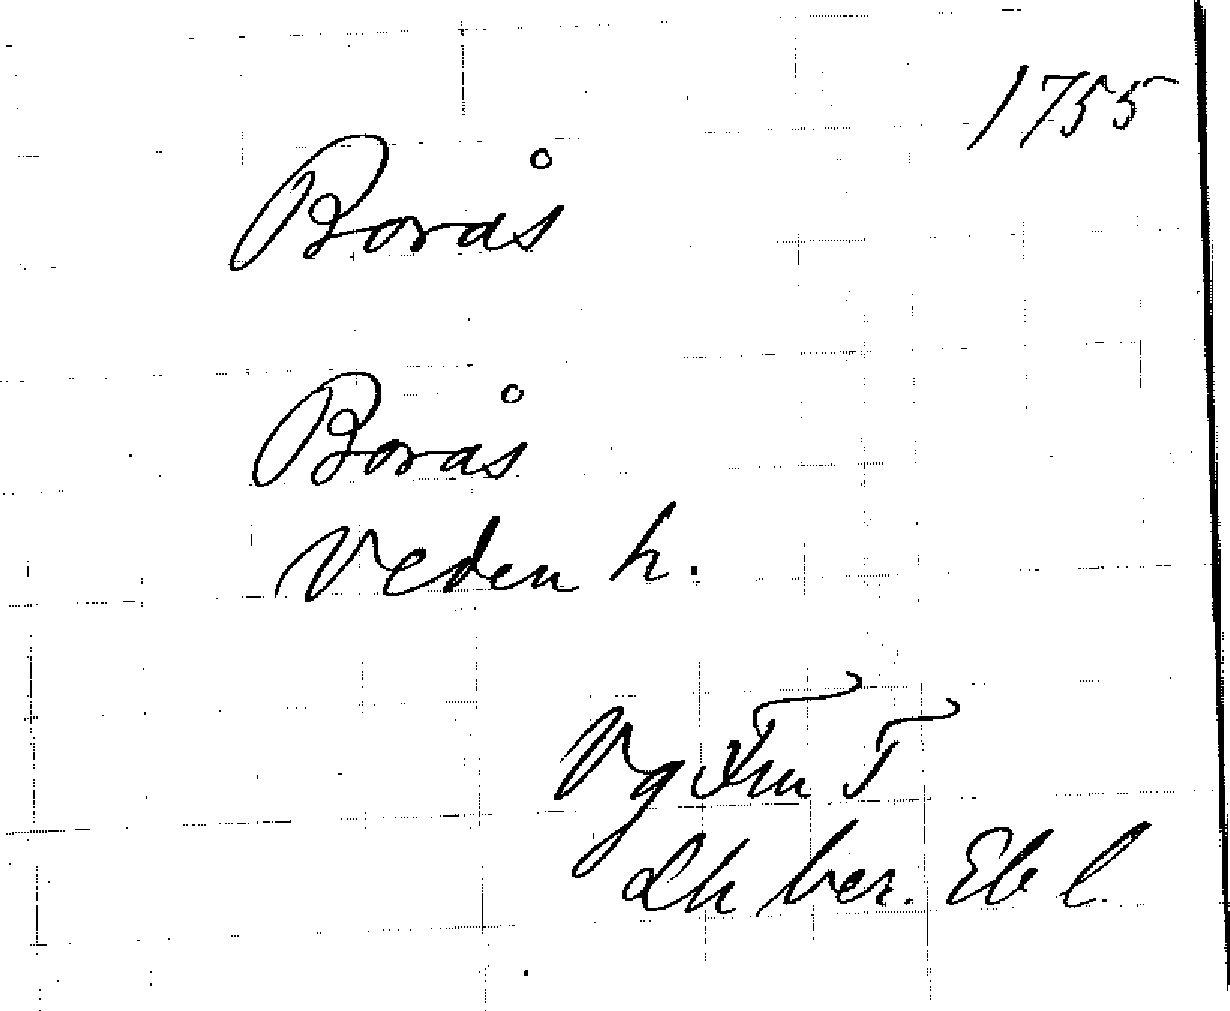 1755
Borås
Borås
Veden h.
Vg Fru T
Lh ber. Eb l.